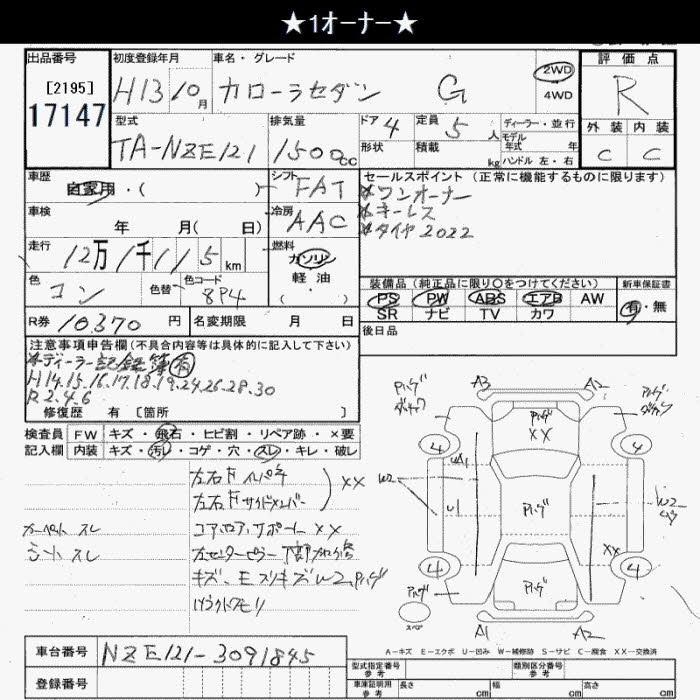 ★1オーナー★
出品番号 初度登録年月 車名・グレード 評価点
[2195]
17147
H13 10月 カローラセダン G 2WD 4WD R
型式 排気量 ドア 4 定員 5人 ディーラー・並行 外装 内装
TA-NZE121 1500cc 形状 積載 kg モデル年式 年 ハンドル 左・右 C C
車歴 自家用・( ) シフト FAT セールスポイント (正常に機能するものに限ります)
＊ワンオーナー
車検 年 月( 日) 冷房 AAC ＊キーレス
＊タイヤ2022
走行 12万1千115km 燃料 ガソリン 軽油 ・( )
色 コン 色替 色コード 8P4
装備品 (純正品に限り○をつけてください) 新車保証書
PS PW ABS エアB AW 有・無
SR ナビ TV カワ
R券 10,370円 名変期限 月 日 後日品
注意事項申告欄 (不具合内容等は具体的に記入して下さい)
＊ディーラー記録簿有
H14.15.16.17.18.19.24.26.28.30
R2.4.6
修復歴 有 [箇所 ]
検査員記入欄 FW キズ・飛石・ヒビ割・リペア跡・×要
内装 キズ・汚レ・コゲ・穴・スレ・キレ・破レ
左右Fインパネ
左右Fサイドメンバー XX
カーペット スレ コアロアサポート XX
シート スレ
キズ、E スリキズ W2
A3 A2
4 4
XX
UA1
W2 U1 W2
XX
4 4
スペア
A1 A2
A－キズ E－エクボ U－凹み W－補修跡 S－サビ C－腐食 XX－交換済
車台番号 NZE121-3091845
登録番号
型式指定番号 参考 類別区分番号 参考
車庫証明用 参考 長さ cm 幅 cm 高さ cm